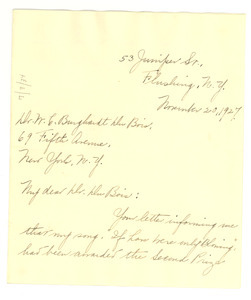 53 Juniper St.
Flushing, N.Y.
November 20, 1927
Dr. W. E. Burghardt Du Bois,
69 Fifth Avenue,
New York, N.Y.
My dear Dr. Du Bois:
Your letter informing me
that my song, If Love Were
had been awarded the Second Prize